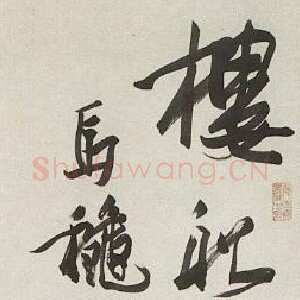 樓船
馬穐
Shufawang.CN